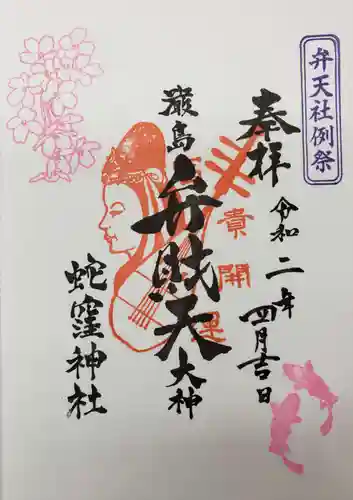 弁天社例祭
奉拝
令和二年四月吉日
厳島
弁財天
大神
蛇窪神社